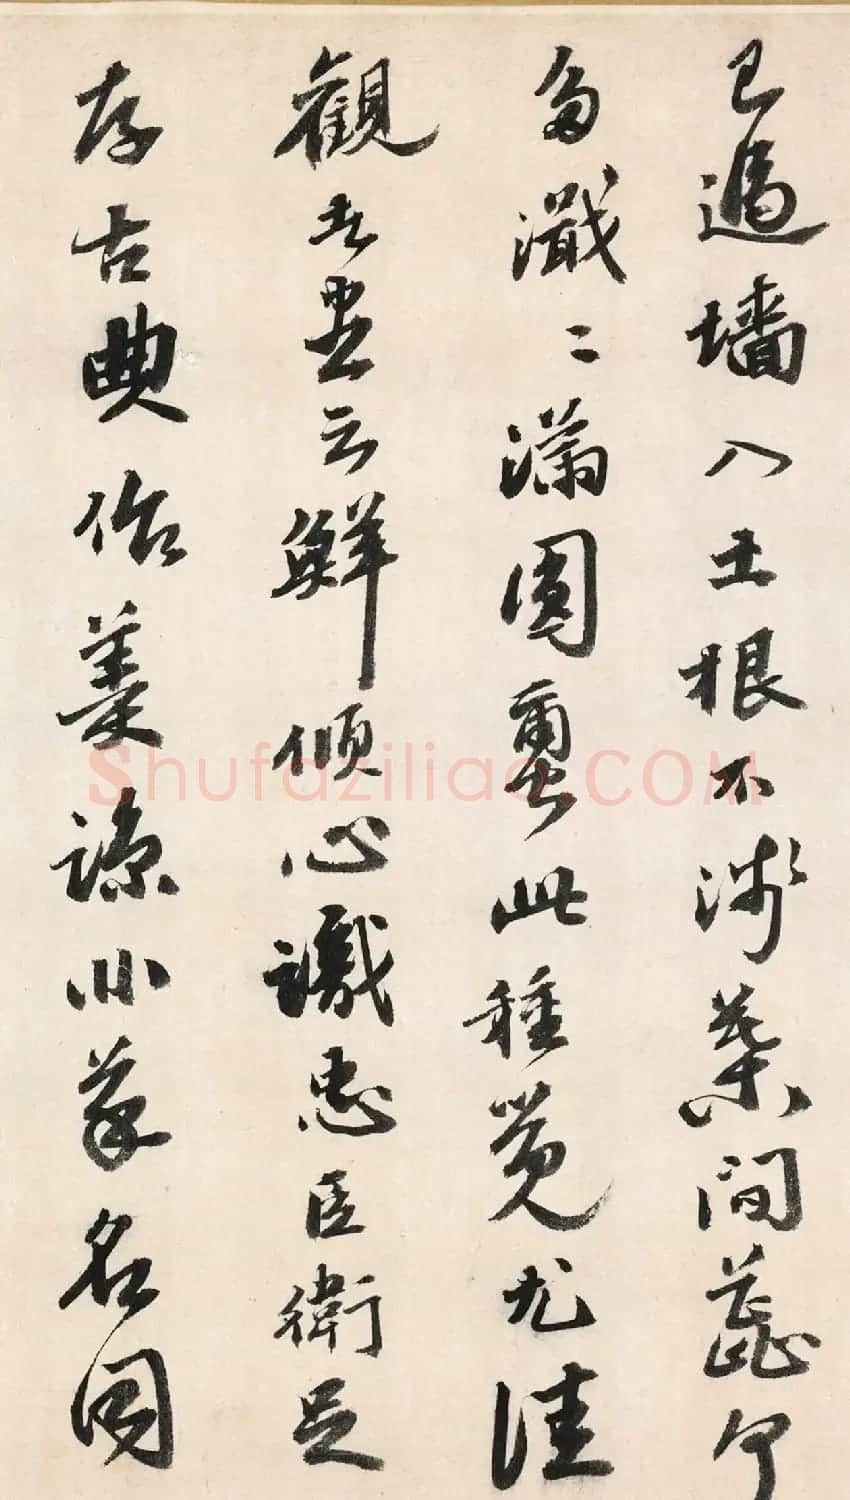 已過墻入土根不淺葉間蕊何
多濈〻滿團蠒此種覺尤佳
觀者盡云鮮傾心識忠臣衛足
存古典作羹諒非葵名同
Shufaziliao.COM